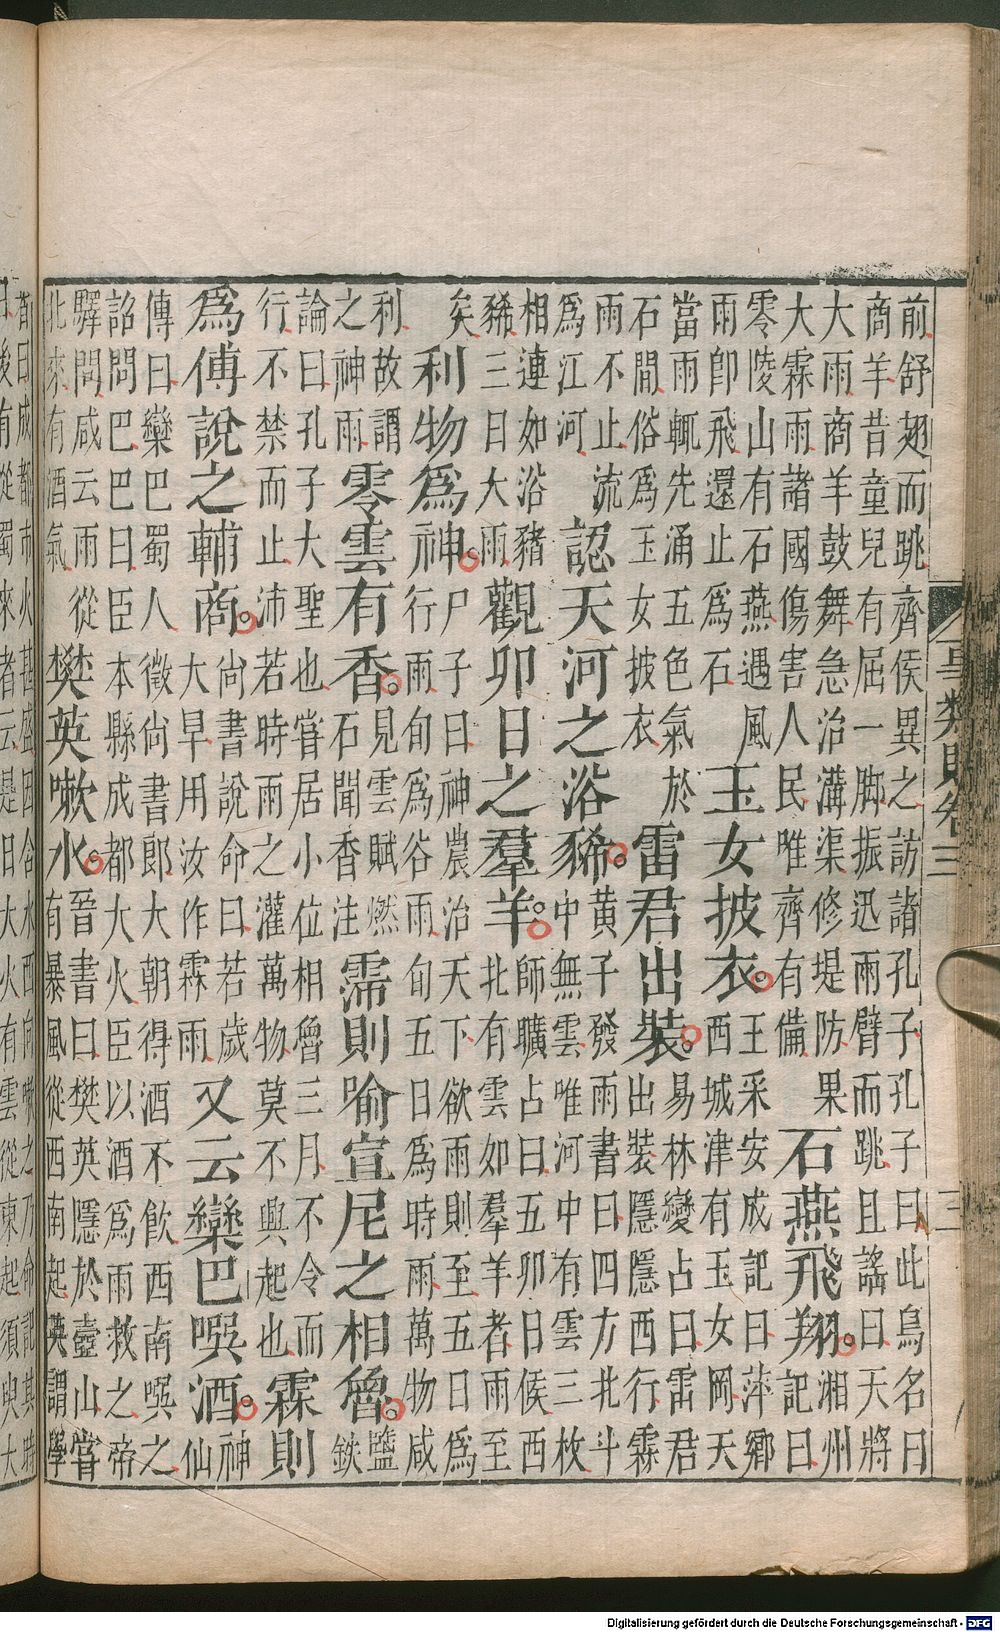 事類賦卷三
三
前舒翅而跳齊侯異之訪諸孔子孔子曰此鳥名曰
商羊昔童兒有屈一脚振迅兩臂而跳且謠曰天將
大雨商羊鼓舞急治溝渠修堤防果
大霖雨諸國傷害人民唯齊有備
石燕飛翔。
湘州
記曰
零陵山有石燕遇風
雨卽飛還止爲石
玉女披衣。
王采安成記曰萍鄉
西城津有玉女岡天
當雨輒先涌五色氣於
石間俗爲玉女披衣
雷君出裝。
易林變占曰雷君
出裝隱隱西行霖
雨不止流
爲江河
認天河之浴豨。
黃子發雨書曰四方北斗
中無雲唯河中有雲三枚
相連如浴豬
豨三日大雨
觀卯日之羣羊。
師曠占曰五卯日候西
北有雲如羣羊者雨至
矣
利物爲神。
尸子曰神農治天下欲雨則至五日爲
行雨旬爲谷雨旬五日爲時雨萬物咸
利故謂
之神雨
零雲有香。
見雲賦燃
石聞香注
濡則喻宣尼之相魯。
鹽
鉄
論曰孔子大聖也嘗居小位相魯三月不令而
行不禁而止沛若時雨之灌萬物莫不興起也
霖則
爲傅說之輔商。
尚書說命曰若歲
大旱用汝作霖雨
又云欒巴噀酒。
神
仙
傳曰欒巴蜀人徵尚書郎大朝得酒不飲西南噀之
詔問巴巴曰臣本縣成都大火臣以酒爲雨救之帝
驛問咸云雨從
北來有酒氣
樊英嗽水。
晉書曰樊英隱於壺山嘗
有暴風從西南起英謂學
都曰成都市火甚盛因含水西向嗽之乃命記其時
日後有從蜀來者云是日大火有雲從東起須臾大
Digitalisierung gefördert durch die Deutsche Forschungsgemeinschaft - DFG